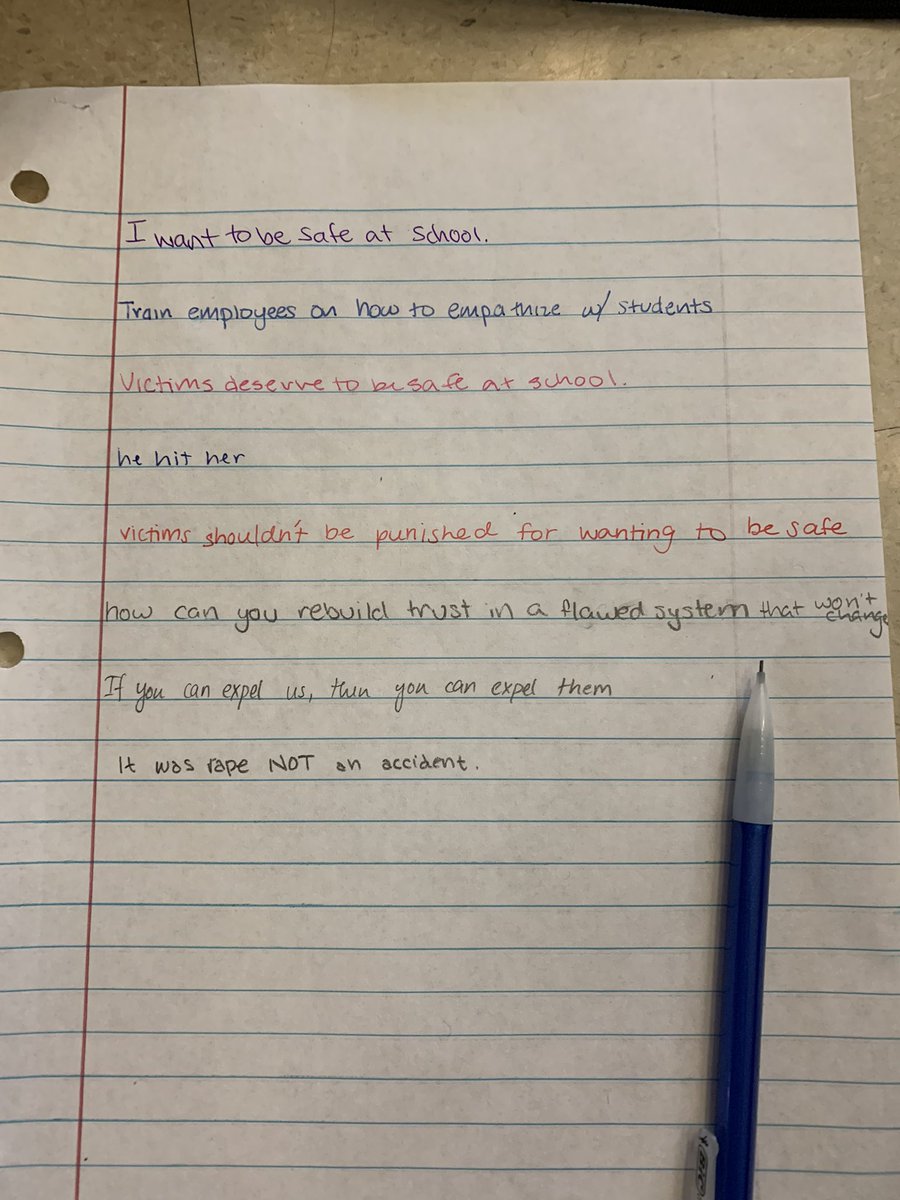 I want to be safe at school.
Train employees on how to empathize w/ students
Victims deserve to be safe at school.
he hit her
victims shouldn't be punished for wanting to be safe
how can you rebuild trust in a flawed system that won't change
If you can expel us, then you can expel them
It was rape NOT an accident.